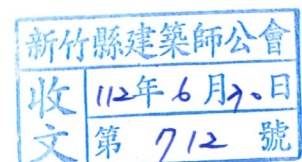 新竹縣建築師公會
收文
112年6月20日
第 712 號